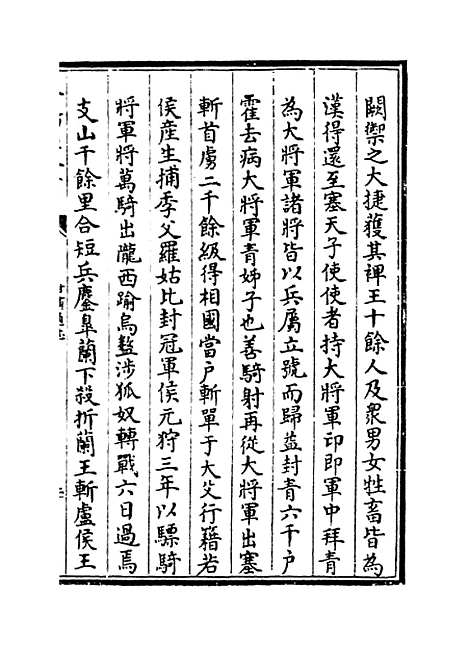 闕禦之大捷獲其裨王十餘人及衆男女牲畜皆為
漢得還至塞天子使使者持大將軍印即軍中拜青
為大將軍諸將皆以兵屬立號而歸益封青六千户
霍去病大將軍青姊子也善騎射再從大將軍出塞
斬首虜二千餘級得相國當户斬單于大父行籍若
侯産生捕季父羅姑比封冠軍侯元狩三年以驃騎
將軍將萬騎出隴西踰烏盭涉狐奴轉戰六日過焉
支山千餘里合短兵鏖臯蘭下殺折蘭王斬盧侯王